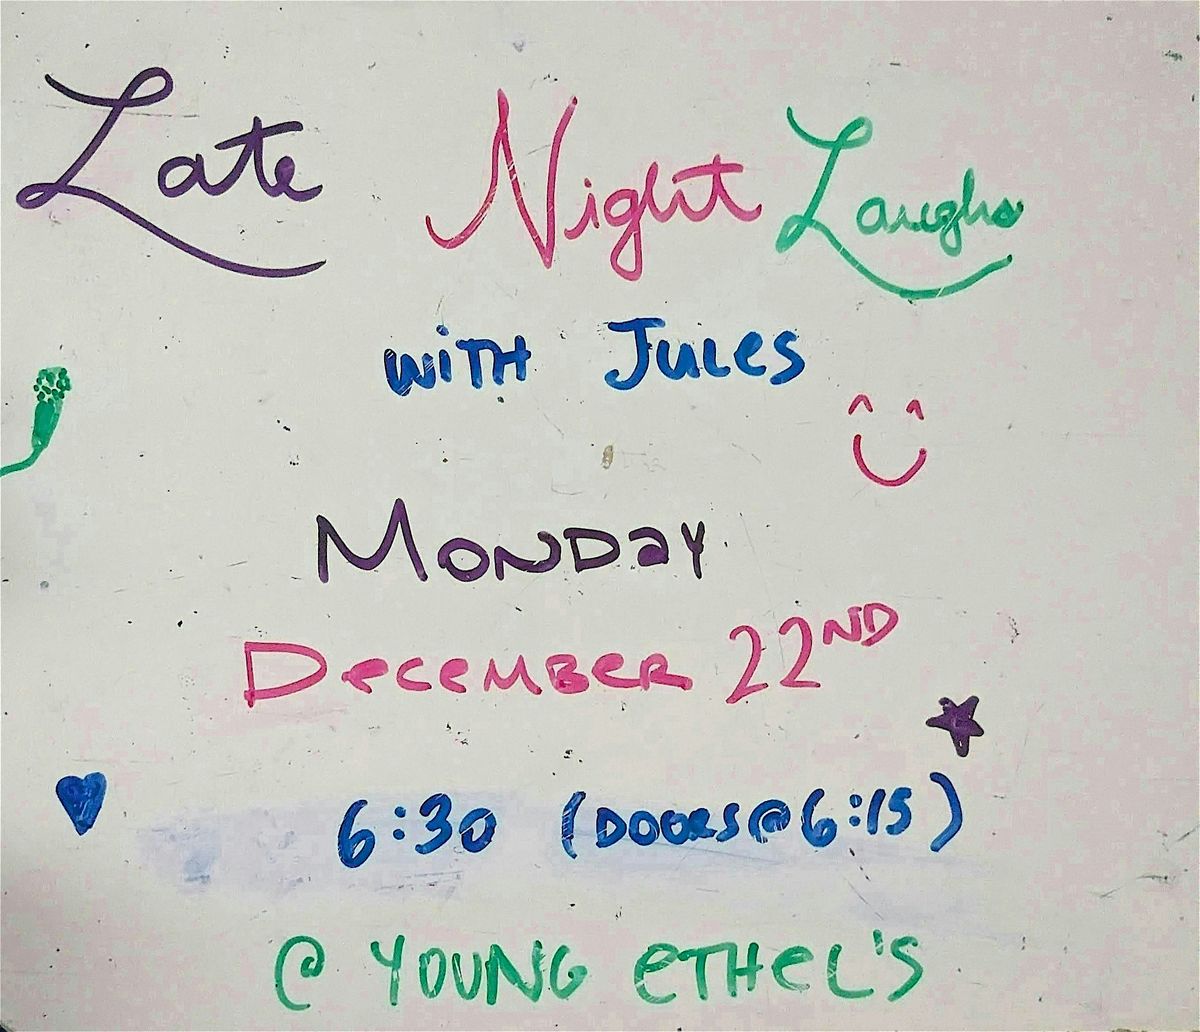 Late Night Laughs
WITH JULES
MONDAY
DECEMBER 22ND
6:30 (DOORS@6:15)
@ YOUNG ETHEL'S